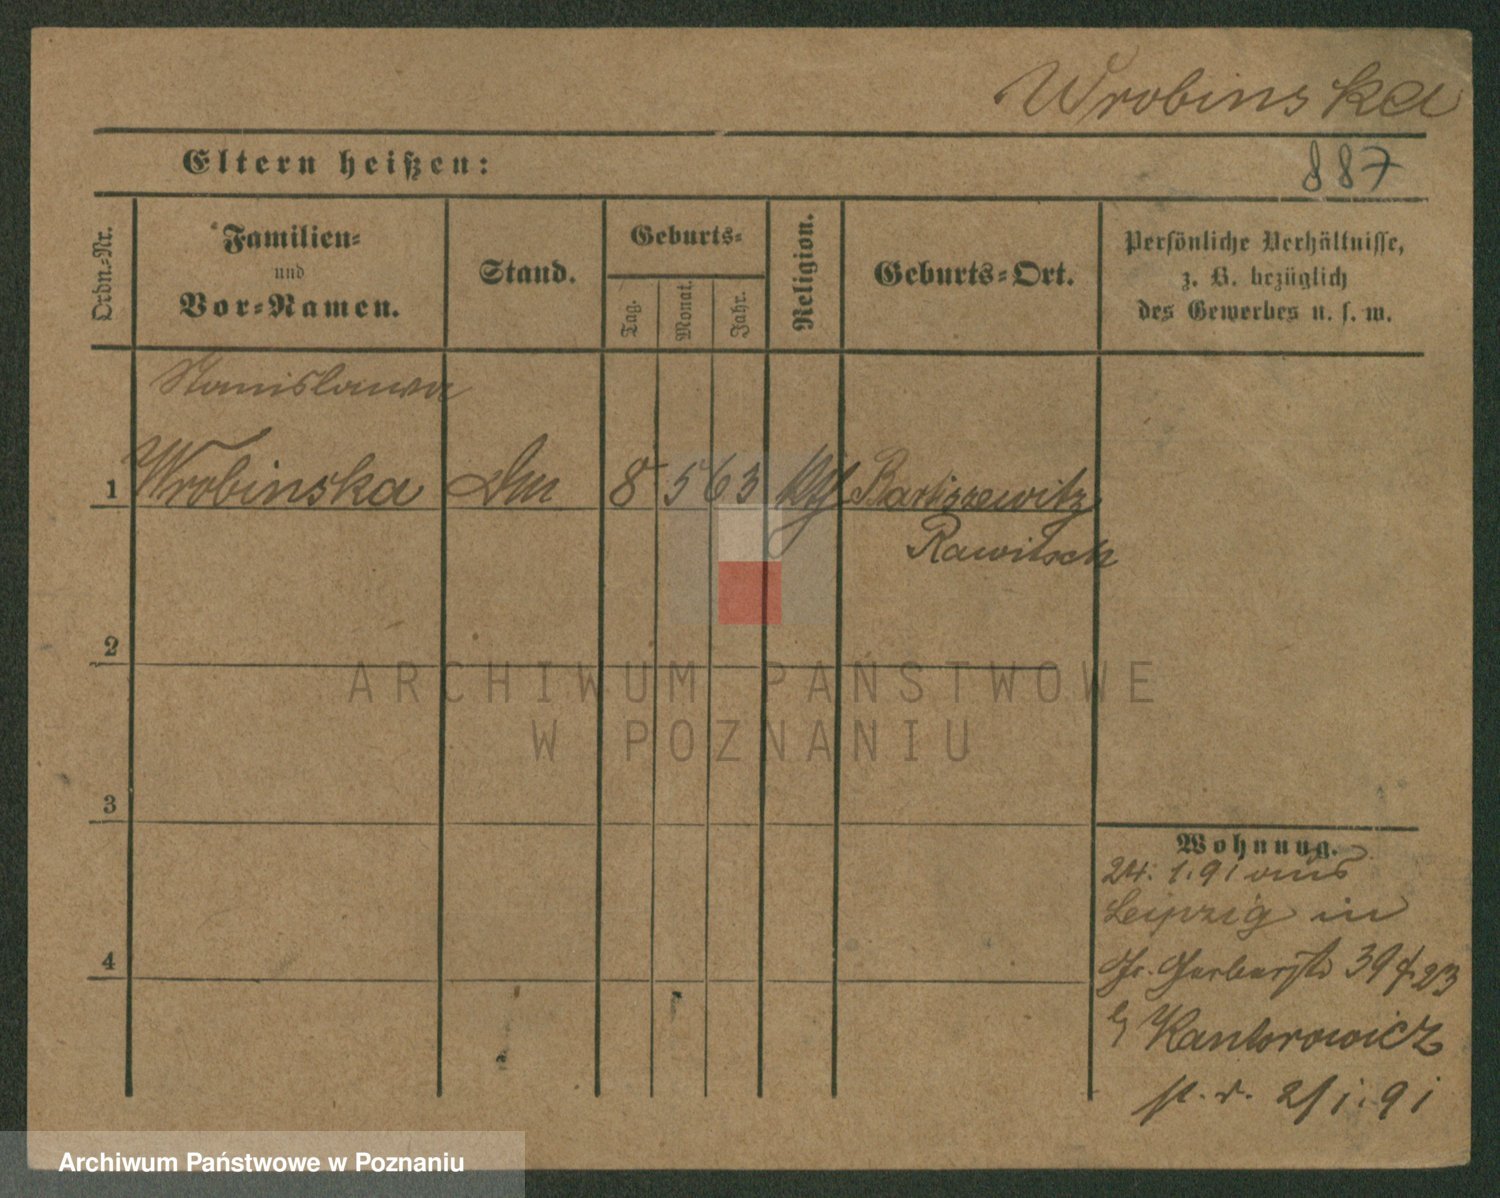 Wrobinska
Eltern heißen:
887
Ordn.-Nr.
Familien-
und
Vor-Namen.
Stand.
Geburts-
Tag.
Monat.
Jahr.
Religion.
Geburts-Ort.
Persönliche Verhältnisse,
z. B. bezüglich
des Gewerbes u. s. w.
Stanislawa
1 Wrobinska 8 5 63 Bartiszewitz
Rawitsch
2
ARCHIWUM PAŃSTWOWE
W POZNANIU
3
4
Wohnung.
24. 1. 91 aus
Leipzig in
Gr. Gerberstr 39
Kantorowicz
1. 91
Archiwum Państwowe w Poznaniu